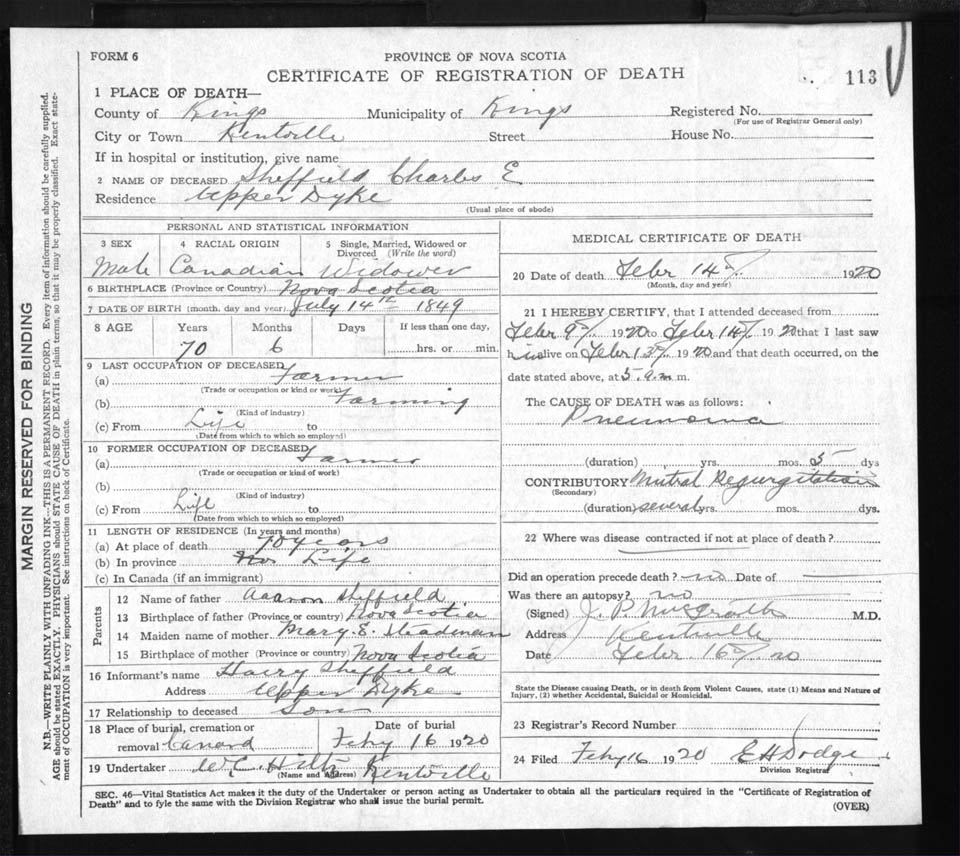 FORM 6
PROVINCE OF NOVA SCOTIA
CERTIFICATE OF REGISTRATION OF DEATH
113
1 PLACE OF DEATH—
County of Kings Municipality of Kings Registered No.
(For use of Registrar General only)
City or Town Kentville Street House No.
If in hospital or institution, give name
2 NAME OF DECEASED Sheffield Charles E
Residence Upper Dyke
(Usual place of abode)
PERSONAL AND STATISTICAL INFORMATION
3 SEX 4 RACIAL ORIGIN 5 Single, Married, Widowed or Divorced (Write the word)
Male Canadian Widower
6 BIRTHPLACE (Province or Country) Nova Scotia
7 DATE OF BIRTH (month, day and year) July 14th 1849
8 AGE Years Months Days If less than one day,
70 6 hrs. or min.
9 LAST OCCUPATION OF DECEASED
(a) Farmer
(Trade or occupation or kind or work)
(b) Farming
(Kind of industry)
(c) From Life to
(Date from which to which so employed)
10 FORMER OCCUPATION OF DECEASED
(a) Farmer
(Trade or occupation or kind of work)
(b)
(Kind of industry)
(c) From Life to
(Date from which to which so employed)
11 LENGTH OF RESIDENCE (In years and months)
(a) At place of death 70 years
(b) In province Life
(c) In Canada (if an immigrant)
Parents
12 Name of father Aaron Sheffield
13 Birthplace of father (Province or Country) Nova Scotia
14 Maiden name of mother Mary. E. Steadman
15 Birthplace of mother (Province or country) Nova Scotia
16 Informant's name Harry Sheffield
Address Upper Dyke
17 Relationship to deceased Son
18 Place of burial, cremation or removal Canard
Date of burial
Feby 16 1920
19 Undertaker W.C. Hiltz Kentville
(Name and Address)
MEDICAL CERTIFICATE OF DEATH
20 Date of death Febr 14th 1920
(Month, day and year)
21 I HEREBY CERTIFY, that I attended deceased from
Febr 9th 1920 to Febr 14th 1920 that I last saw
him alive on Febr 13th 1920 and that death occurred, on the
date stated above, at 5. a.m m.
The CAUSE OF DEATH was as follows:
Pneumonia
(duration) yrs. mos. 5 dys
CONTRIBUTORY Mitral Regurgitation
(Secondary)
(duration) several yrs. mos. dys.
22 Where was disease contracted if not at place of death?
Did an operation precede death? no Date of
Was there an autopsy? no
(Signed) J. P. McGrath M.D.
Address Kentville
Date Febr. 16th 20
State the Disease causing Death, or in death from Violent Causes, state (1) Means and Nature of
Injury, (2) whether Accidental, Suicidal or Homicidal.
23 Registrar's Record Number
24 Filed Feby 16 1920 E H Dodge
Division Registrar
SEC. 46—Vital Statistics Act makes it the duty of the Undertaker or person acting as Undertaker to obtain all the particulars required in the "Certificate of Registration of
Death" and to fyle the same with the Division Registrar who shall issue the burial permit.
(OVER)
MARGIN RESERVED FOR BINDING
N.B.—WRITE PLAINLY WITH UNFADING INK—THIS IS A PERMANENT RECORD. Every item of information should be carefully supplied.
AGE should be stated EXACTLY. PHYSICIANS should STATE CAUSE OF DEATH in plain terms, so that it may be properly classified. Exact state-
ment of OCCUPATION is very important. See instructions on back of Certificate.